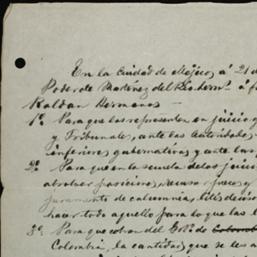 En la Ciudad de Méjico, á 21 d
Poder de Martinez del Rio herm.ˢ á f
Roldan Hermanos
1º Para que los representen en juicio y
y Tribunales, ante las Autoridades
inferiores, gubernativas y ante las
2º Para que en la secuela de los juici
absolver posiciones,
juramento de calumnia, litis decisor
hacer todo aquello para lo que las l
3º Para que cobren del Gob.º de
Colombia, la cantidad que se les a